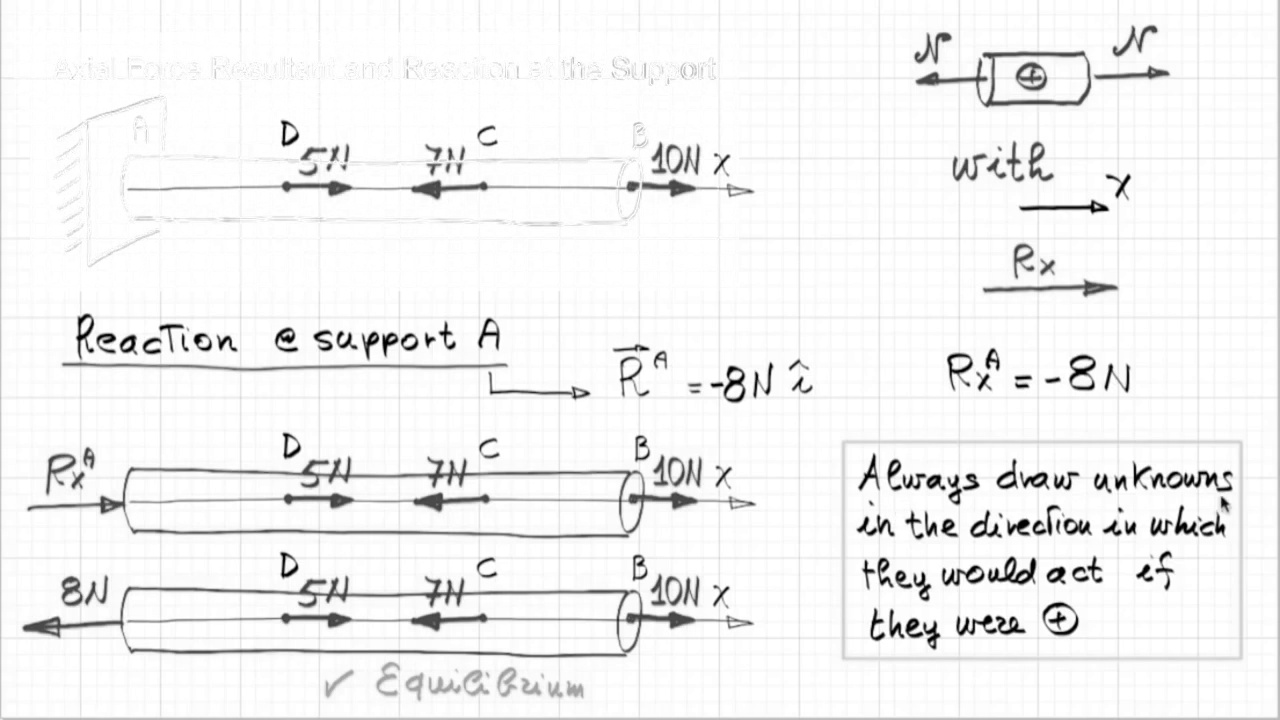 Axial Force Resultant and Reaction at the Support
N N
+
A D 5N 7N C B 10N x
with
x
Rx
Reaction @ support A
R A = -8N î
RxA = -8N
RxA D 5N 7N C B 10N x
8N D 5N 7N C B 10N x
✓ Equilibrium
Always draw unknowns
in the direction in which
they would act if
they were ⊕